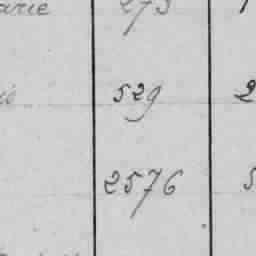 arie 273 1
529 2
2576 5